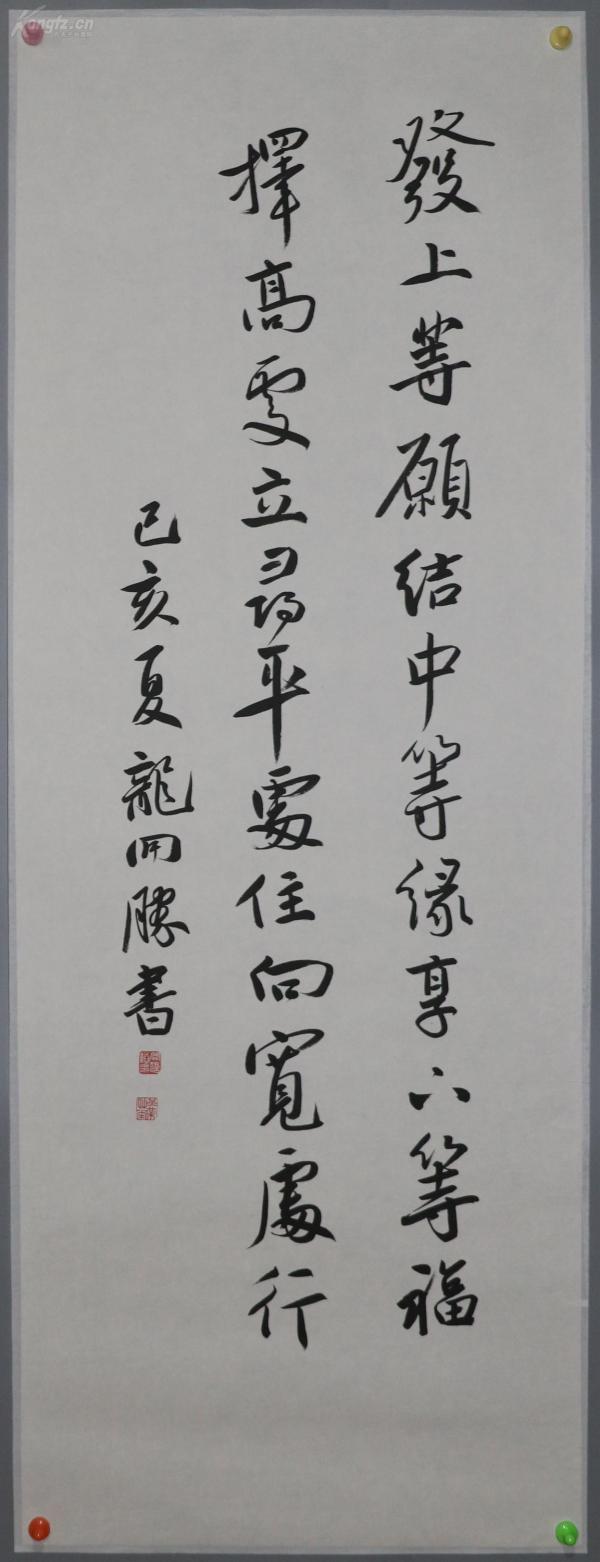 發上等願結中等緣享下等福
擇高處立尋平處住向寬處行
己亥夏龍開勝書
Kongfz.cn